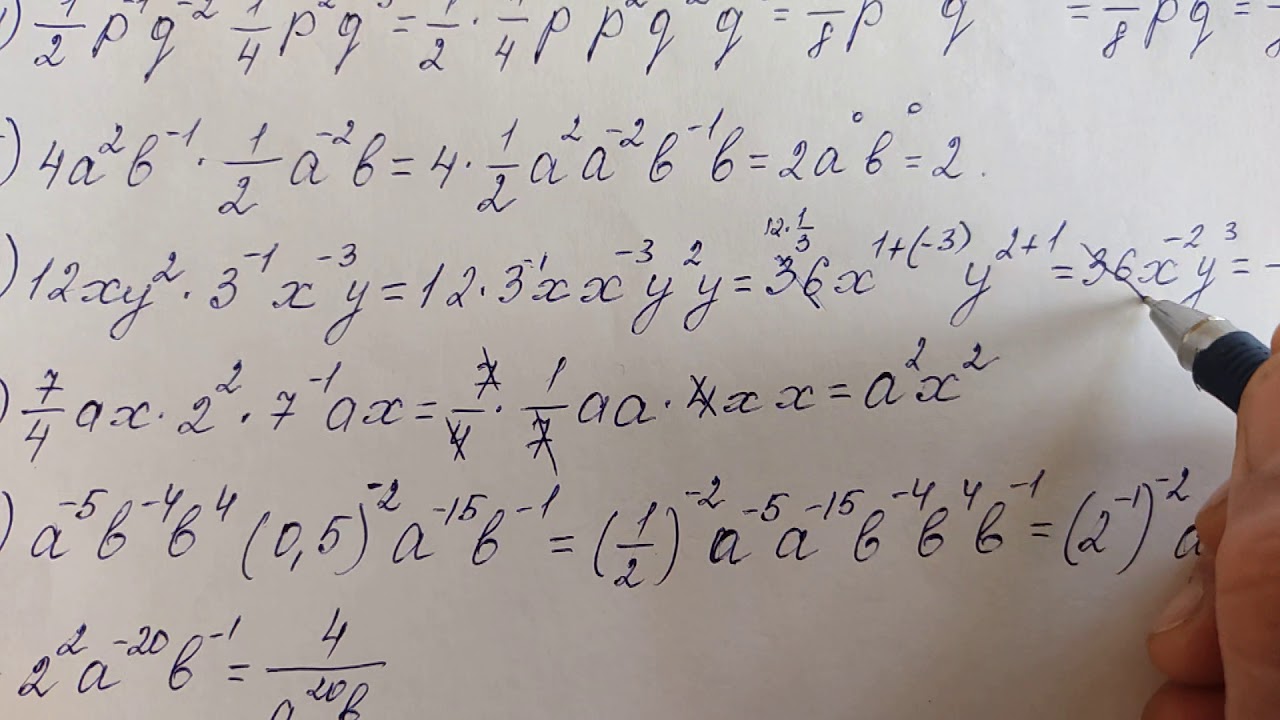 ) 1/2 p⁻¹q⁻² 1/4 p²q³ = 1/2 · 1/4 p p² q² q = 1/8 p q = 1/8 pq =
) 4a²b⁻¹ · 1/2 a⁻²b = 4 · 1/2 a²a⁻²b⁻¹b = 2a⁰b⁰ = 2.
12 · 1/3
) 12xy² · 3⁻¹x⁻³y = 12 · 3⁻¹xx⁻³y²y = 36x¹⁺⁽⁻³⁾y²⁺¹ = 36x⁻²y³ = -
) 7/4 ax · 2² · 7⁻¹ax = 7/4 · 1/7 aa · 4xx = a²x²
) a⁻⁵b⁻⁴b⁴(0,5)⁻²a⁻¹⁵b⁻¹ = (1/2)⁻²a⁻⁵a⁻¹⁵b⁻⁴b⁴b⁻¹ = (2⁻¹)⁻²a
2²a⁻²⁰b⁻¹ = 4/a²⁰b